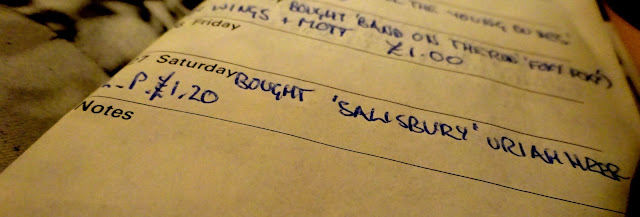 THE YOUNG DUDES'
Friday BOUGHT 'BAND ON THE RUN'
WINGS + MOTT £1.00
7 Saturday BOUGHT 'SALISBURY' URIAH HEEP
L.P. £1.20
Notes